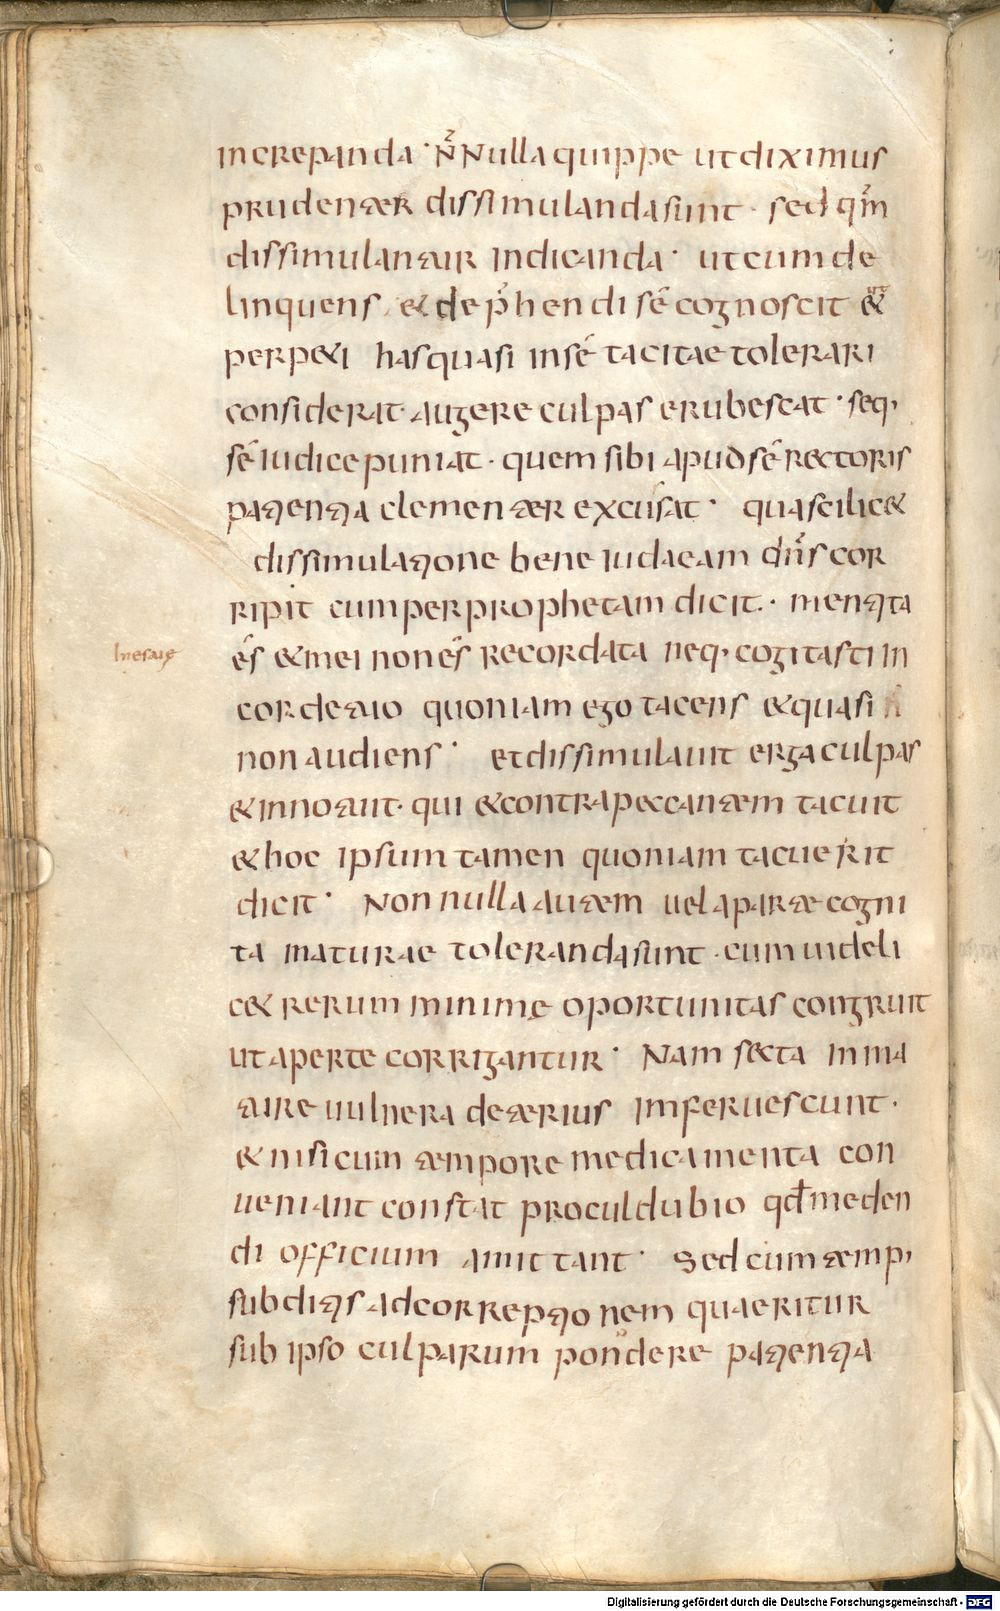 increpanda · N̄ Nulla quippe ut diximus
prudenter dissimulanda sunt · sed qm̄
dissimulantur indicanda · ut cum de
linquens & dep̄hendi sē cognoscit &
perp&i has quas in sē tacitae tolerari
considerat · augere culpas erubescat · seq;
sē iudice puniat · quem sibi apud sē rectoris
patientia clementer excusat · qua scilic&
dissimulatione bene iudaeam dn̄s cor
ripit cum per prophetam dicit · mentita
ēs & mei non ēs recordata neq; cogitasti in
In esaię
corde tuo quoniam ego tacens & quasi
non audiens · et dissimulauit erga culpas
& innotuit · qui & contra peccantem tacuit
& hoc ipsum tamen quoniam tacuerit
dicit · Non nulla autem uel aparte cogni
ta maturae toleranda sunt · cum uideli
c& rerum minime oportunitas congruit
ut aperte corrigantur · Nam secta inma
ture uulnera deterius imferuescunt ·
& nisi cum tempore medicamenta con
ueniant constat procul dubio qđ meden
di officium amittant · Sed cum temp;
subditis ad correptionem quaeritur
sub ipso culparum pondere patientia
Digitalisierung gefördert durch die Deutsche Forschungsgemeinschaft - DFG